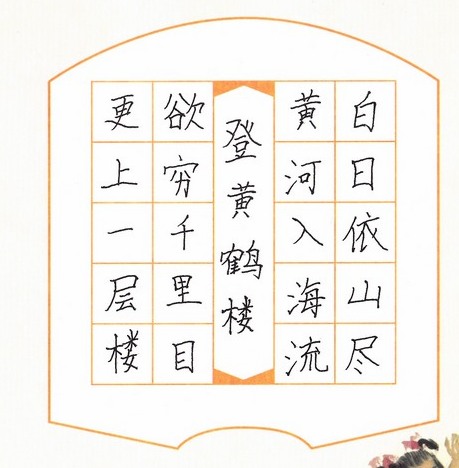 白日依山尽
黄河入海流
登黄鹤楼
欲穷千里目
更上一层楼